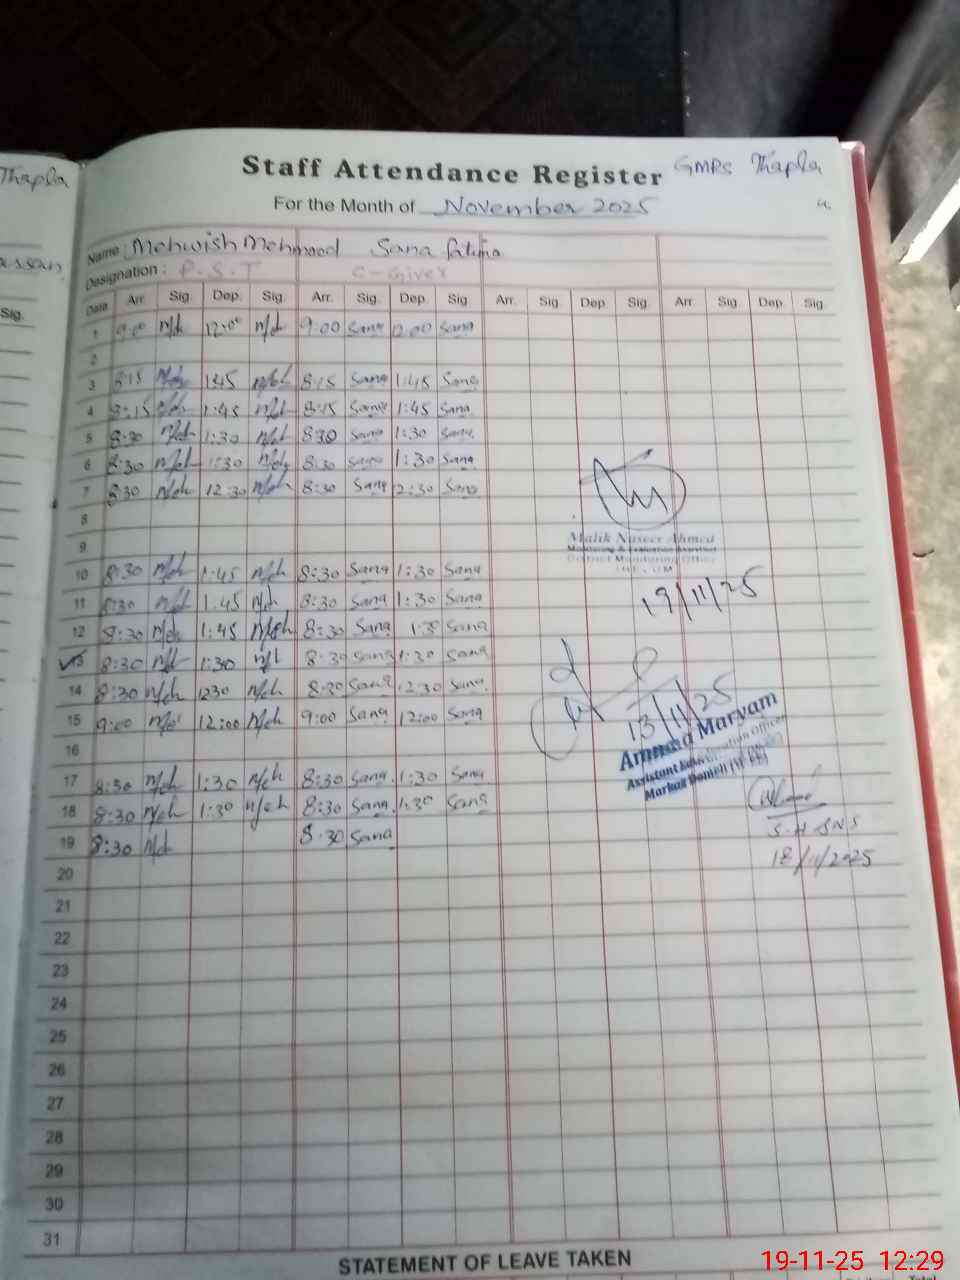 Thapla
Staff Attendance Register GMPS Thapla
For the Month of November 2025
assan
Name : Mehwish Mehmood Sana fatima
Designation : P.S.T C-Giver
Sig.
Date Arr. Sig. Dep. Sig. Arr. Sig. Dep. Sig. Arr. Sig. Dep. Sig. Arr. Sig. Dep. Sig.
1 9:00 12:00 9:00 Sana 12:00 Sana
2
3 8:15 1:45 8:15 Sana 1:45 Sana
4 8:15 1:45 8:15 Sana 1:45 Sana
5 8:30 1:30 8:30 Sana 1:30 Sana
6 8:30 1:30 8:30 Sana 1:30 Sana
7 8:30 12:30 8:30 Sana 12:30 Sana
8
9
Malik Naseer Ahmed
Monitoring & Evaluation Assistant
District Monitoring Officer
10 8:30 1:45 8:30 Sana 1:30 Sana
11 8:30 1:45 8:30 Sana 1:30 Sana
19/11/25
12 8:30 1:45 8:30 Sana 1:30 Sana
13 8:30 1:30 8:30 Sana 1:30 Sana
14 8:30 12:30 8:30 Sana 12:30 Sana
15 9:00 12:00 9:00 Sana 12:00 Sana
13/11/25
Maryam
Assistant Education Officer
Markaz
16
17 8:30 1:30 8:30 Sana 1:30 Sana
18 8:30 1:30 8:30 Sana 1:30 Sana
19 8:30 8:30 Sana
18/11/2025
20
21
22
23
24
25
26
27
28
29
30
31
STATEMENT OF LEAVE TAKEN
Total
19-11-25 12:29